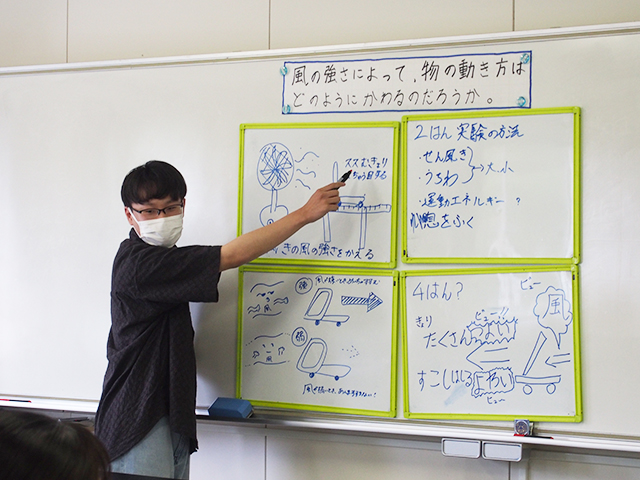 風の強さによって、物の動き方は
どのようにかわるのだろうか。
ススむきょり
ちゅう目する
きの風の強さをかえる
2はん 実験の方法
・せん風き
・うちわ
→大、小
・運動エネルギー?
息をふく
強
弱
4はん?
きょり
たくさん
つよい
ビュー!!
ビュー
風
すこしはしる
よわい
ビュー